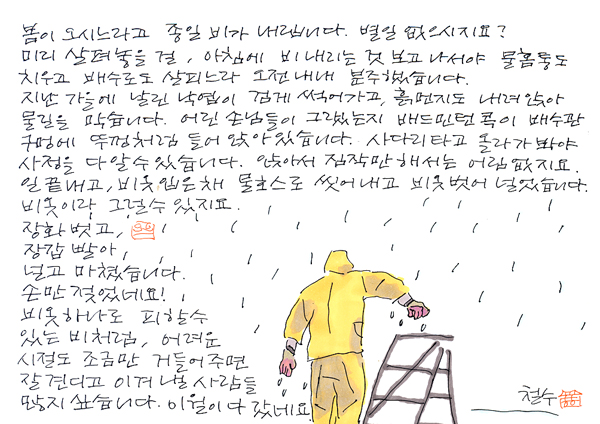 봄이 오시느라고 종일 비가 내립니다. 별일 없으시지요?
미리 살펴놓을 걸, 아침에 비 내리는 것 보고 나서야 물홈통도
치우고 배수로도 살피느라 오전 내내 분주했습니다.
지난 가을에 날린 낙엽이 검게 썩어가고, 흙먼지도 내려앉아
물길을 막습니다. 어린 손님들이 그랬는지 배드민턴 콕이 배수관
구멍에 뚜껑처럼 들어 앉아 있습니다. 사다리 타고 올라가 봐야
사정을 다 알 수 있습니다. 앉아서 짐작만 해서는 어림없지요.
일 끝내고, 비옷 입은 채 물호스로 씻어내고 비옷 벗어 널었습니다.
비옷이라 그럴 수 있지요.
장화 벗고,
장갑 빨아,
널고 마쳤습니다.
손만 젖었네요!
비옷 하나로 피할 수
있는 비처럼, 어려운
시절도 조금만 거들어주면
잘 견디고 이겨낼 사람들
많지 싶습니다. 이월이 다 갔네요.
철수